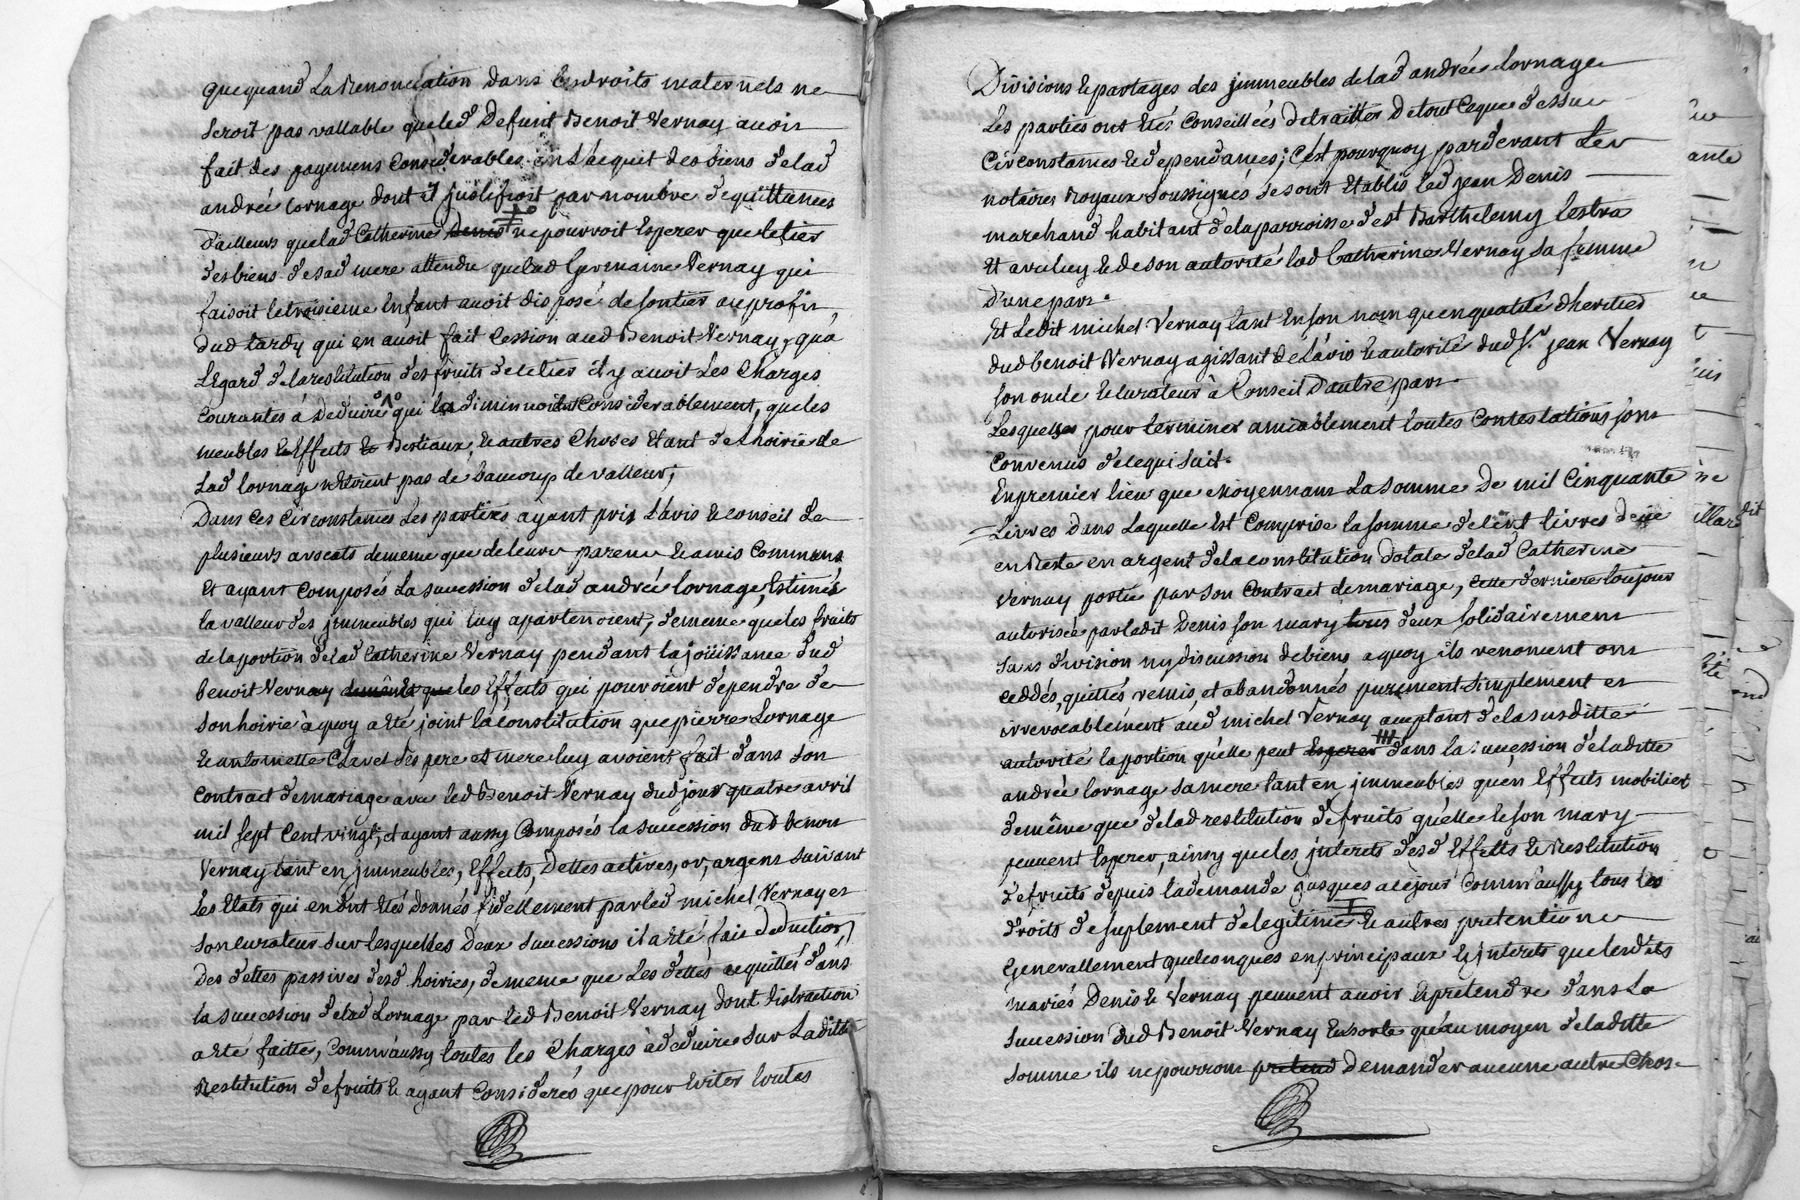 quequand La Renonciation dans lesdroits maternels ne
seroit pas vallable queled Defunt Benoit Vernay avoir
fait des payemens Considerables en L'acquit des biens delad
andrée Lornage dont il justifioit par nombre de quittances
d'ailleurs quelad Catherine Denis ne pourroit Esperer que letier
desbiens desad mere attendu quelad Germaine Vernay qui
faisoit letroisieme Enfant avoit disposé desontier au profit
dud tardy qui en avoit fait Cession aud Benoit Vernay, qu'a
L'Egard delarestitution desfruits deletier il y avoit Les Charges
Courantes à Deduire qui la diminuoient Considerablement, queles
meubles & Effects & Bestiaux, & autres Choses Etant de L'hoirie de
Lad Lornage n'Etoient pas de beaucoup de valleur;
Dans ces Circonstances Les parties ayant pris L'avis & conseil de
plusieurs avocats dememe que deleurs parens & amis Communs
Et ayant Composés La succession delad andrée Lornage, Estimés
la valleur des jmmeubles qui luy apartenoient, dememe queles fruits
delaportion delad Catherine Vernay pendant lajoüissance dud
benoit Vernay demême que les Effects qui pouvoient dependre de
son hoirie à quoy a Eté joint la Constitution que pierre Lornage
& antoinette Clavel ses pere et mere luy avoient fait dans son
Contract demariage avec led Benoit Vernay dud jour quatre avril
mil sept cent vingt, et ayant aussy Composés la succession dud benoit
Vernay tant en jmmeubles, Effects, Dettes actives, or, argent suivant
Les Etats qui en ont Etés donnés fidellement par led michel Vernay et
son curateur sur lesquelles Deux successions il a Eté fait deduction
Des dettes passives desd hoiries, dememe que Les dettes acquittés dans
la succession delad Lornage par led Benoit Vernay dont distraction
a Eté faitte, Comm'aussy toutes les Charges à deduire sur Laditte
Restitution defruits & ayant Considerés que pour Eviter toutes
Divisions & partages des jmmeubles delad andrée Lornage
Les parties ont Etés Conseillées detraitter De tout Ceque dessus
Circonstances & dependances; C'est pourquoy pardevant Les
notaires Royaux soussignés se sont Etablis led jean Denis
marchand habitant delaparroisse de st Barthelemy Lestra
Et avecluy & de son autorité lad Catherine Vernay sa femme
d'une part.
Et Ledit michel Vernay tant En son nom qu'en qualité d'heritier
dud benoit Vernay agissant de L'avis & autorité dud Sr. jean Vernay
son oncle & curateur à Conseil d'autre part.
Lesquelles pour terminer amiablement toutes Contestations sont
Convenus delequi suit.
En premier lieu que Moyennant La somme De mil Cinquante
Livres dans Laquelle Est Comprise la somme de cent livres deüe
en Reste en argent delaconstitution dotale delad Catherine
Vernay portée par son Contract demariage, cette derniere toujours
autorisée parledit Denis son mary tous deux solidairement
sans division ny discussion debiens a quoy ils renoncent ont
ceddés, quittés remis, et abandonnés purement simplement et
irrevocablement aud michel Vernay acceptant delasusditte
autorité la portion qu'elle peut Esperer dans la succession deladitte
andrée Lornage samere tant en jmmeubles qu'en Effects mobiliers
demême que delad restitution defruits qu'elle & son mary
peuvent Esperer, ainsy queles jnterets desd Effects & Restitution
defruits depuis lademande jusques acejour Comm'aussy tous les
droits desuplement delegitime & autres pretentions
Generallement quelconques en principaux & jnterets que lesdits
mariés Denis & Vernay peuvent avoir & pretendre dans La
succession dud Benoit Vernay Ensorte qu'au moyen deladitte
somme ils ne pourront pretend demander aucune autre Chose